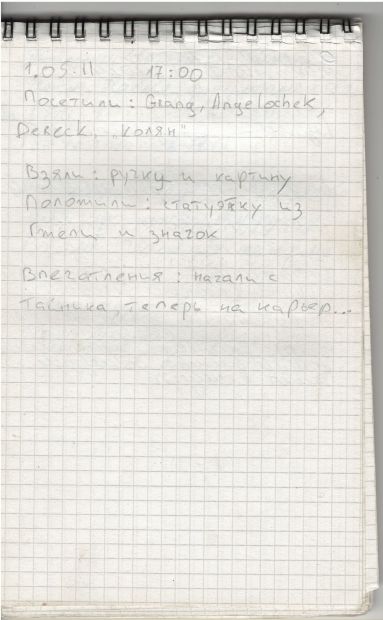 1.05.11 17:00
Посетили: Grang, Angelochek,
Deveck, „колян"
Взяли: ручку и картину
Положили: статуэтку из
Гжели и значок
Впечатления: начали с
тайника, теперь на карьер...